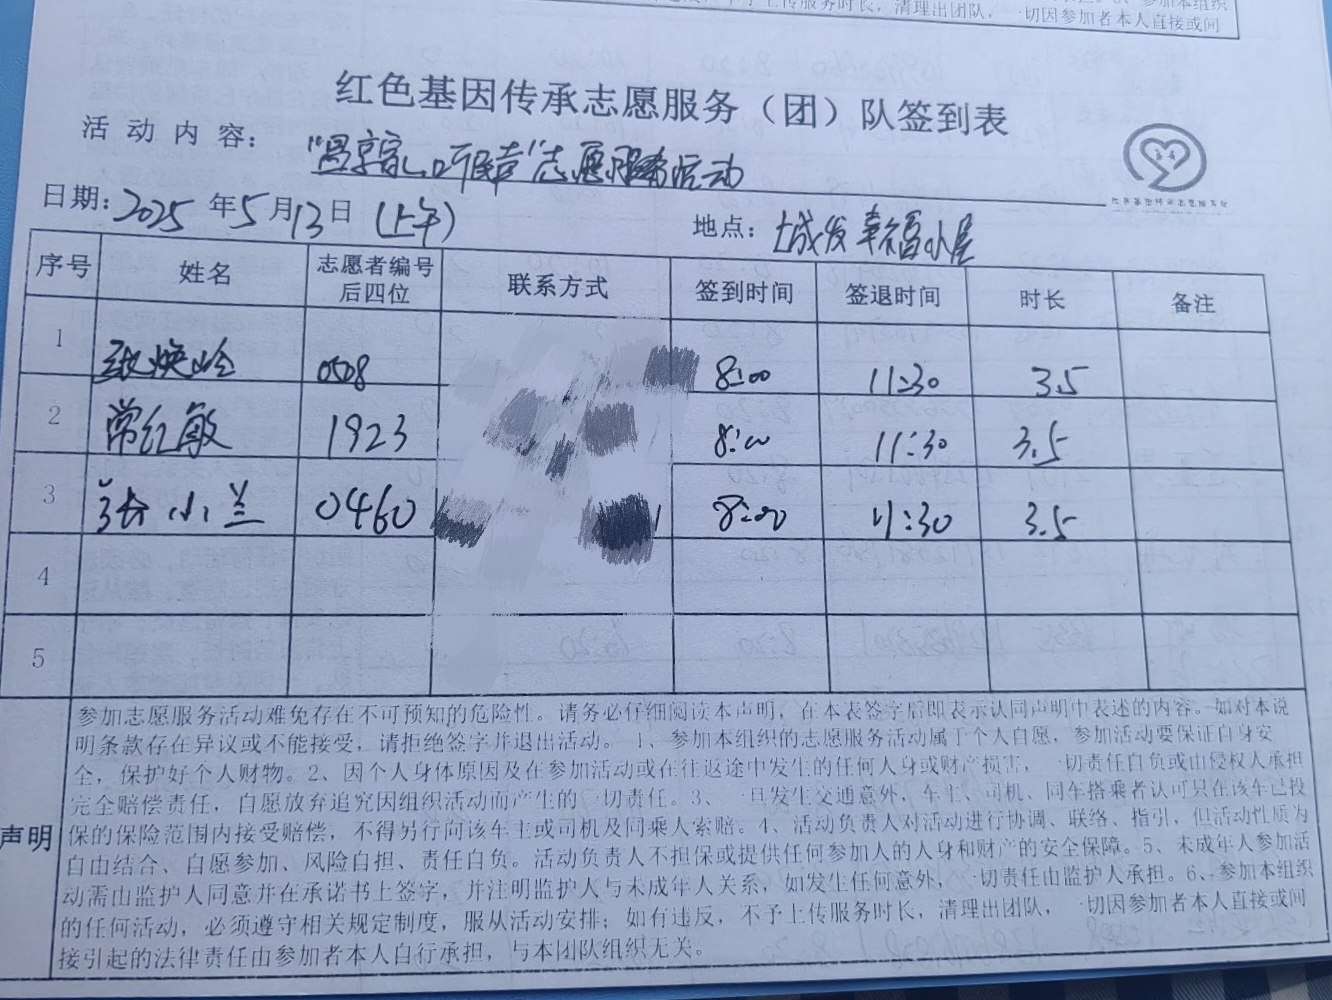 接引起的法律责任由参加者本人自行承担，与本团队组织无关。
不予上传服务时长，清理出团队，一切因参加者本人直接或间
红色基因传承志愿服务（团）队签到表
活动内容：
听民声"志愿服务活动
日期：2025年5月13日（上午）
地点：城发幸福小屋
序号 姓名 志愿者编号后四位 联系方式 签到时间 签退时间 时长 备注
1 张焕岭 0508 8:00 11:30 3.5
2 常红敏 1923 8:00 11:30 3.5
3 张小兰 0460 8:00 11:30 3.5
4
5
声明
参加志愿服务活动难免存在不可预知的危险性。请务必仔细阅读本声明，在本表签字后即表示认同声明中表述的内容。如对本说
明条款存在异议或不能接受，请拒绝签字并退出活动。1、参加本组织的志愿服务活动属于个人自愿，参加活动要保证自身安
全，保护好个人财物。2、因个人身体原因及在参加活动或在往返途中发生的任何人身或财产损害，一切责任自负或由侵权人承担
完全赔偿责任，自愿放弃追究因组织活动而产生的一切责任。3、一旦发生交通意外，车主、司机、同车搭乘者认可只在该车已投
保的保险范围内接受赔偿，不得另行向该车主或司机及同乘人索赔。4、活动负责人对活动进行协调、联络、指引，但活动性质为
自由结合、自愿参加、风险自担、责任自负。活动负责人不担保或提供任何参加人的人身和财产的安全保障。5、未成年人参加活
动需由监护人同意并在承诺书上签字，并注明监护人与未成年人关系，如发生任何意外，一切责任由监护人承担。6、参加本组织
的任何活动，必须遵守相关规定制度，服从活动安排；如有违反，不予上传服务时长，清理出团队，一切因参加者本人直接或间
接引起的法律责任由参加者本人自行承担，与本团队组织无关。